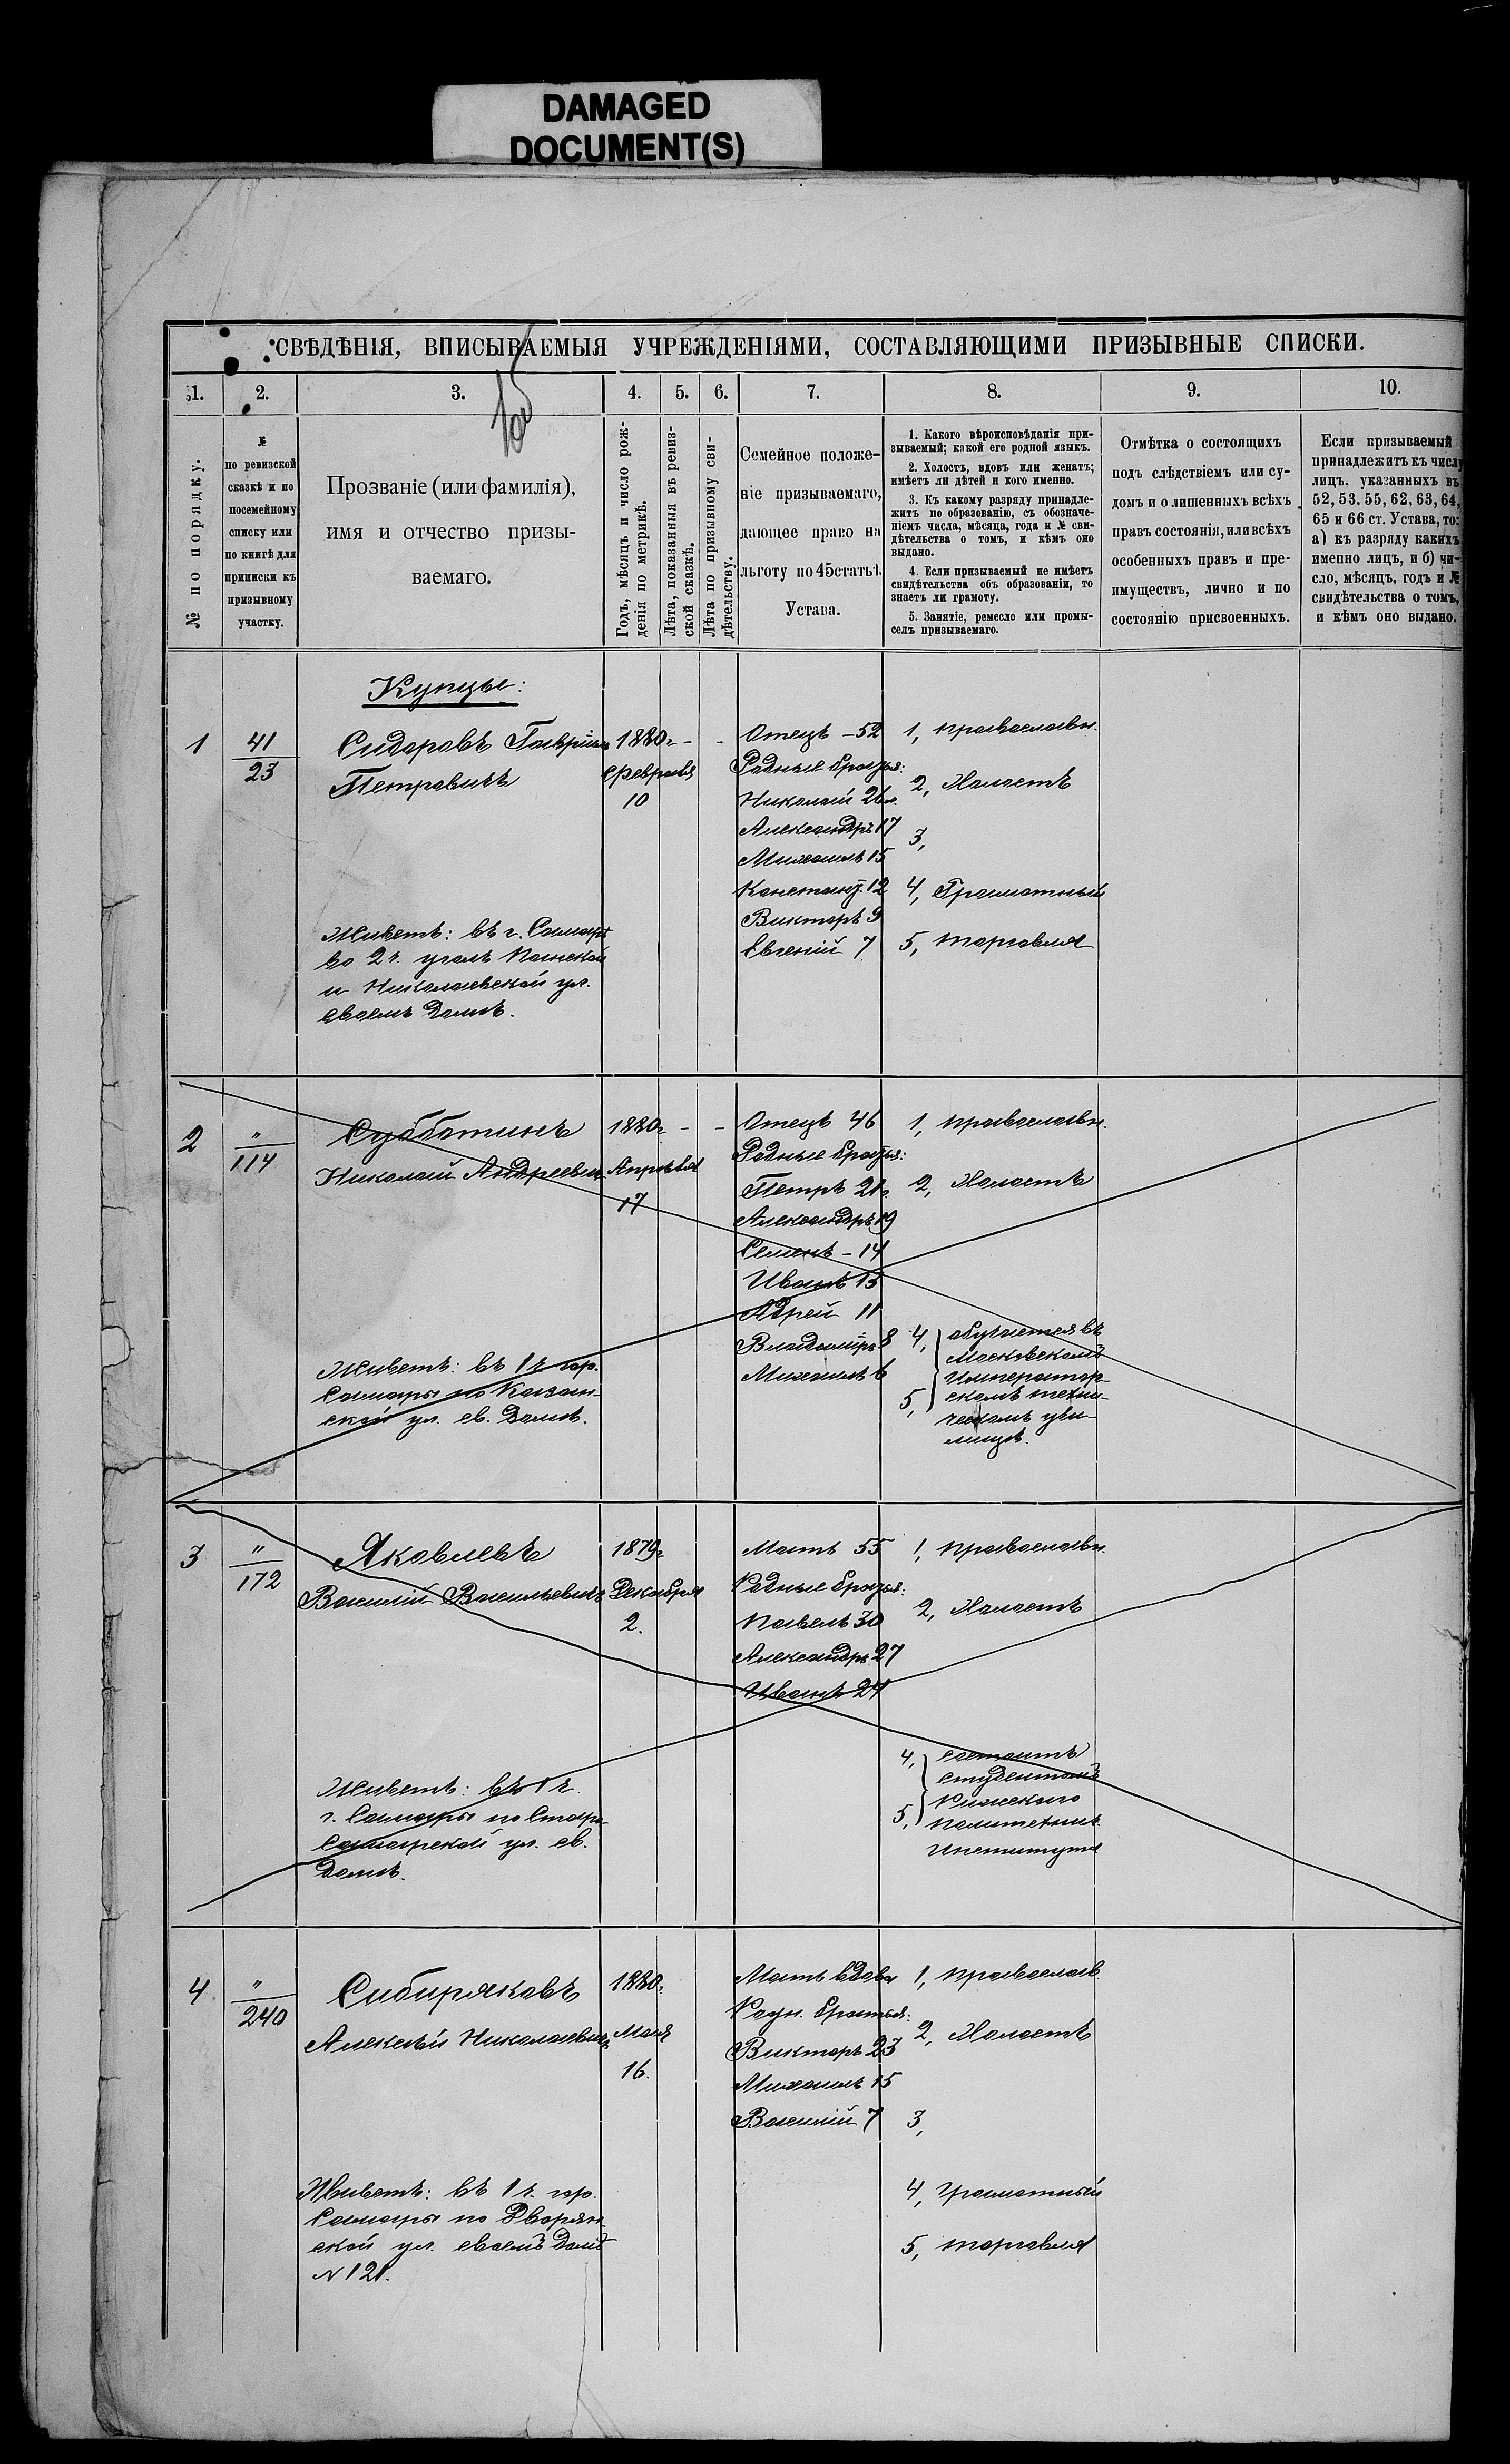 DAMAGED
DOCUMENT(S)
СВѢДѢНІЯ, ВПИСЫВАЕМЫЯ УЧРЕЖДЕНІЯМИ, СОСТАВЛЯЮЩИМИ ПРИЗЫВНЫЕ СПИСКИ.
1. 2. 3. 4. 5. 6. 7. 8. 9. 10.
№ по порядку.
№
по ревизской
сказкѣ и по
посемейному
списку или
по книгѣ для
приписки къ
призывному
участку.
Прозваніе (или фамилія),
имя и отчество призы-
ваемаго.
Годъ, мѣсяцъ и число рож-
денія по метрикѣ.
Лѣта, показанныя въ ревиз-
ской сказкѣ.
Лѣта по призывному сви-
дѣтельству.
Семейное положе-
ніе призываемаго,
дающее право на
льготу по 45 статьѣ
Устава.
1. Какого вѣроисповѣданія при-
зываемый; какой его родной языкъ.
2. Холостъ, вдовъ или женатъ;
имѣетъ ли дѣтей и кого именно.
3. Къ какому разряду принадле-
житъ по образованію, съ обозначе-
ніемъ числа, мѣсяца, года и № сви-
дѣтельства о томъ, и кѣмъ оно
выдано.
4. Если призываемый не имѣетъ
свидѣтельства объ образованіи, то
знаетъ ли грамоту.
5. Занятіе, ремесло или промы-
селъ призываемаго.
Отмѣтка о состоящихъ
подъ слѣдствіемъ или су-
домъ и о лишенныхъ всѣхъ
правъ состоянія, или всѣхъ
особенныхъ правъ и пре-
имуществъ, лично и по
состоянію присвоенныхъ.
Если призываемый
принадлежитъ къ числу
лицъ, указанныхъ въ
52, 53, 55, 62, 63, 64,
65 и 66 ст. Устава, то:
а) къ разряду какихъ
именно лицъ, и б) чи-
сло, мѣсяцъ, годъ и №
свидѣтельства о томъ,
и кѣмъ оно выдано.
Купцы:
1
41
23
Сидоровъ Гавріилъ
Петровичъ
Живетъ: въ г. Самарѣ
во 2 ч. уголъ Панской
и Николаевской ул.
своемъ домѣ.
1880 г. - -
Февраля
10
Отецъ - 52
Родные братья:
Николай 26 л.
Александръ 17
Михаилъ 15
Констант. 12
Викторъ 9
Евгеній 7
1, православн.
2, Холостъ
3,
4, Грамотный
5, торговля
2
"
114
Субботинъ
Николай Андреевич
Живетъ: въ 1 ч. гор.
Самары по Казан-
ской ул. св. домѣ.
1880 г. - -
Апрѣля
17
Отецъ 46
Родные братья:
Петръ 21 г.
Александръ 19
Семенъ - 14
Иванъ 13
Адрей 11
Владиміръ 8
Михаилъ 6
1, православн.
2, Холостъ
4, обучается въ
Московскомъ
Император-
5, скомъ техни-
ческомъ учи-
лищѣ.
3
"
172
Яковлевъ
Василій Васильевичъ
Живетъ: въ 1 ч.
г. Самары по Старо-
Самарской ул. св.
домѣ.
1879 г.
Декабря
2.
Мать 55
Родные братья:
Павелъ 30
Александръ 27
Иванъ 24
1, православн.
2, Холостъ
4, состоитъ
студентомъ
5, Рижскаго
политехнич.
Института
4
"
240
Сибиряковъ
Алексѣй Николаевичъ
Живетъ: въ 1 ч. гор.
Самары по Дворян-
ской ул. своемъ домѣ
N 121.
1880 г.
Мая
16.
Мать вдова
Родн. братья:
Викторъ 23
Михаилъ 15
Василій 7
1, православ.
2, Холостъ
3,
4, грамотный
5, торговля